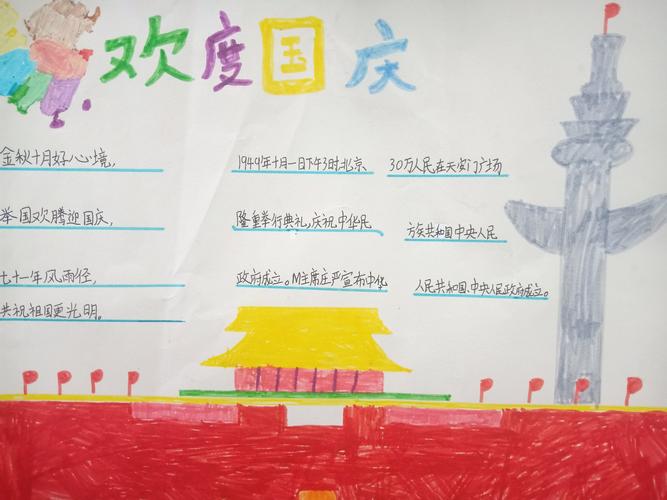 欢度国庆
金秋十月好心境,
举国欢腾迎国庆,
七十一年风雨径,
共祝祖国更光明。
1949年十月一日下午3时,北京 30万人民在天安门广场
隆重举行典礼,庆祝中华民 方矣共和国中央人民
政府成立。M主席庄严宣布中华 人民共和国、中央人民政府成立。